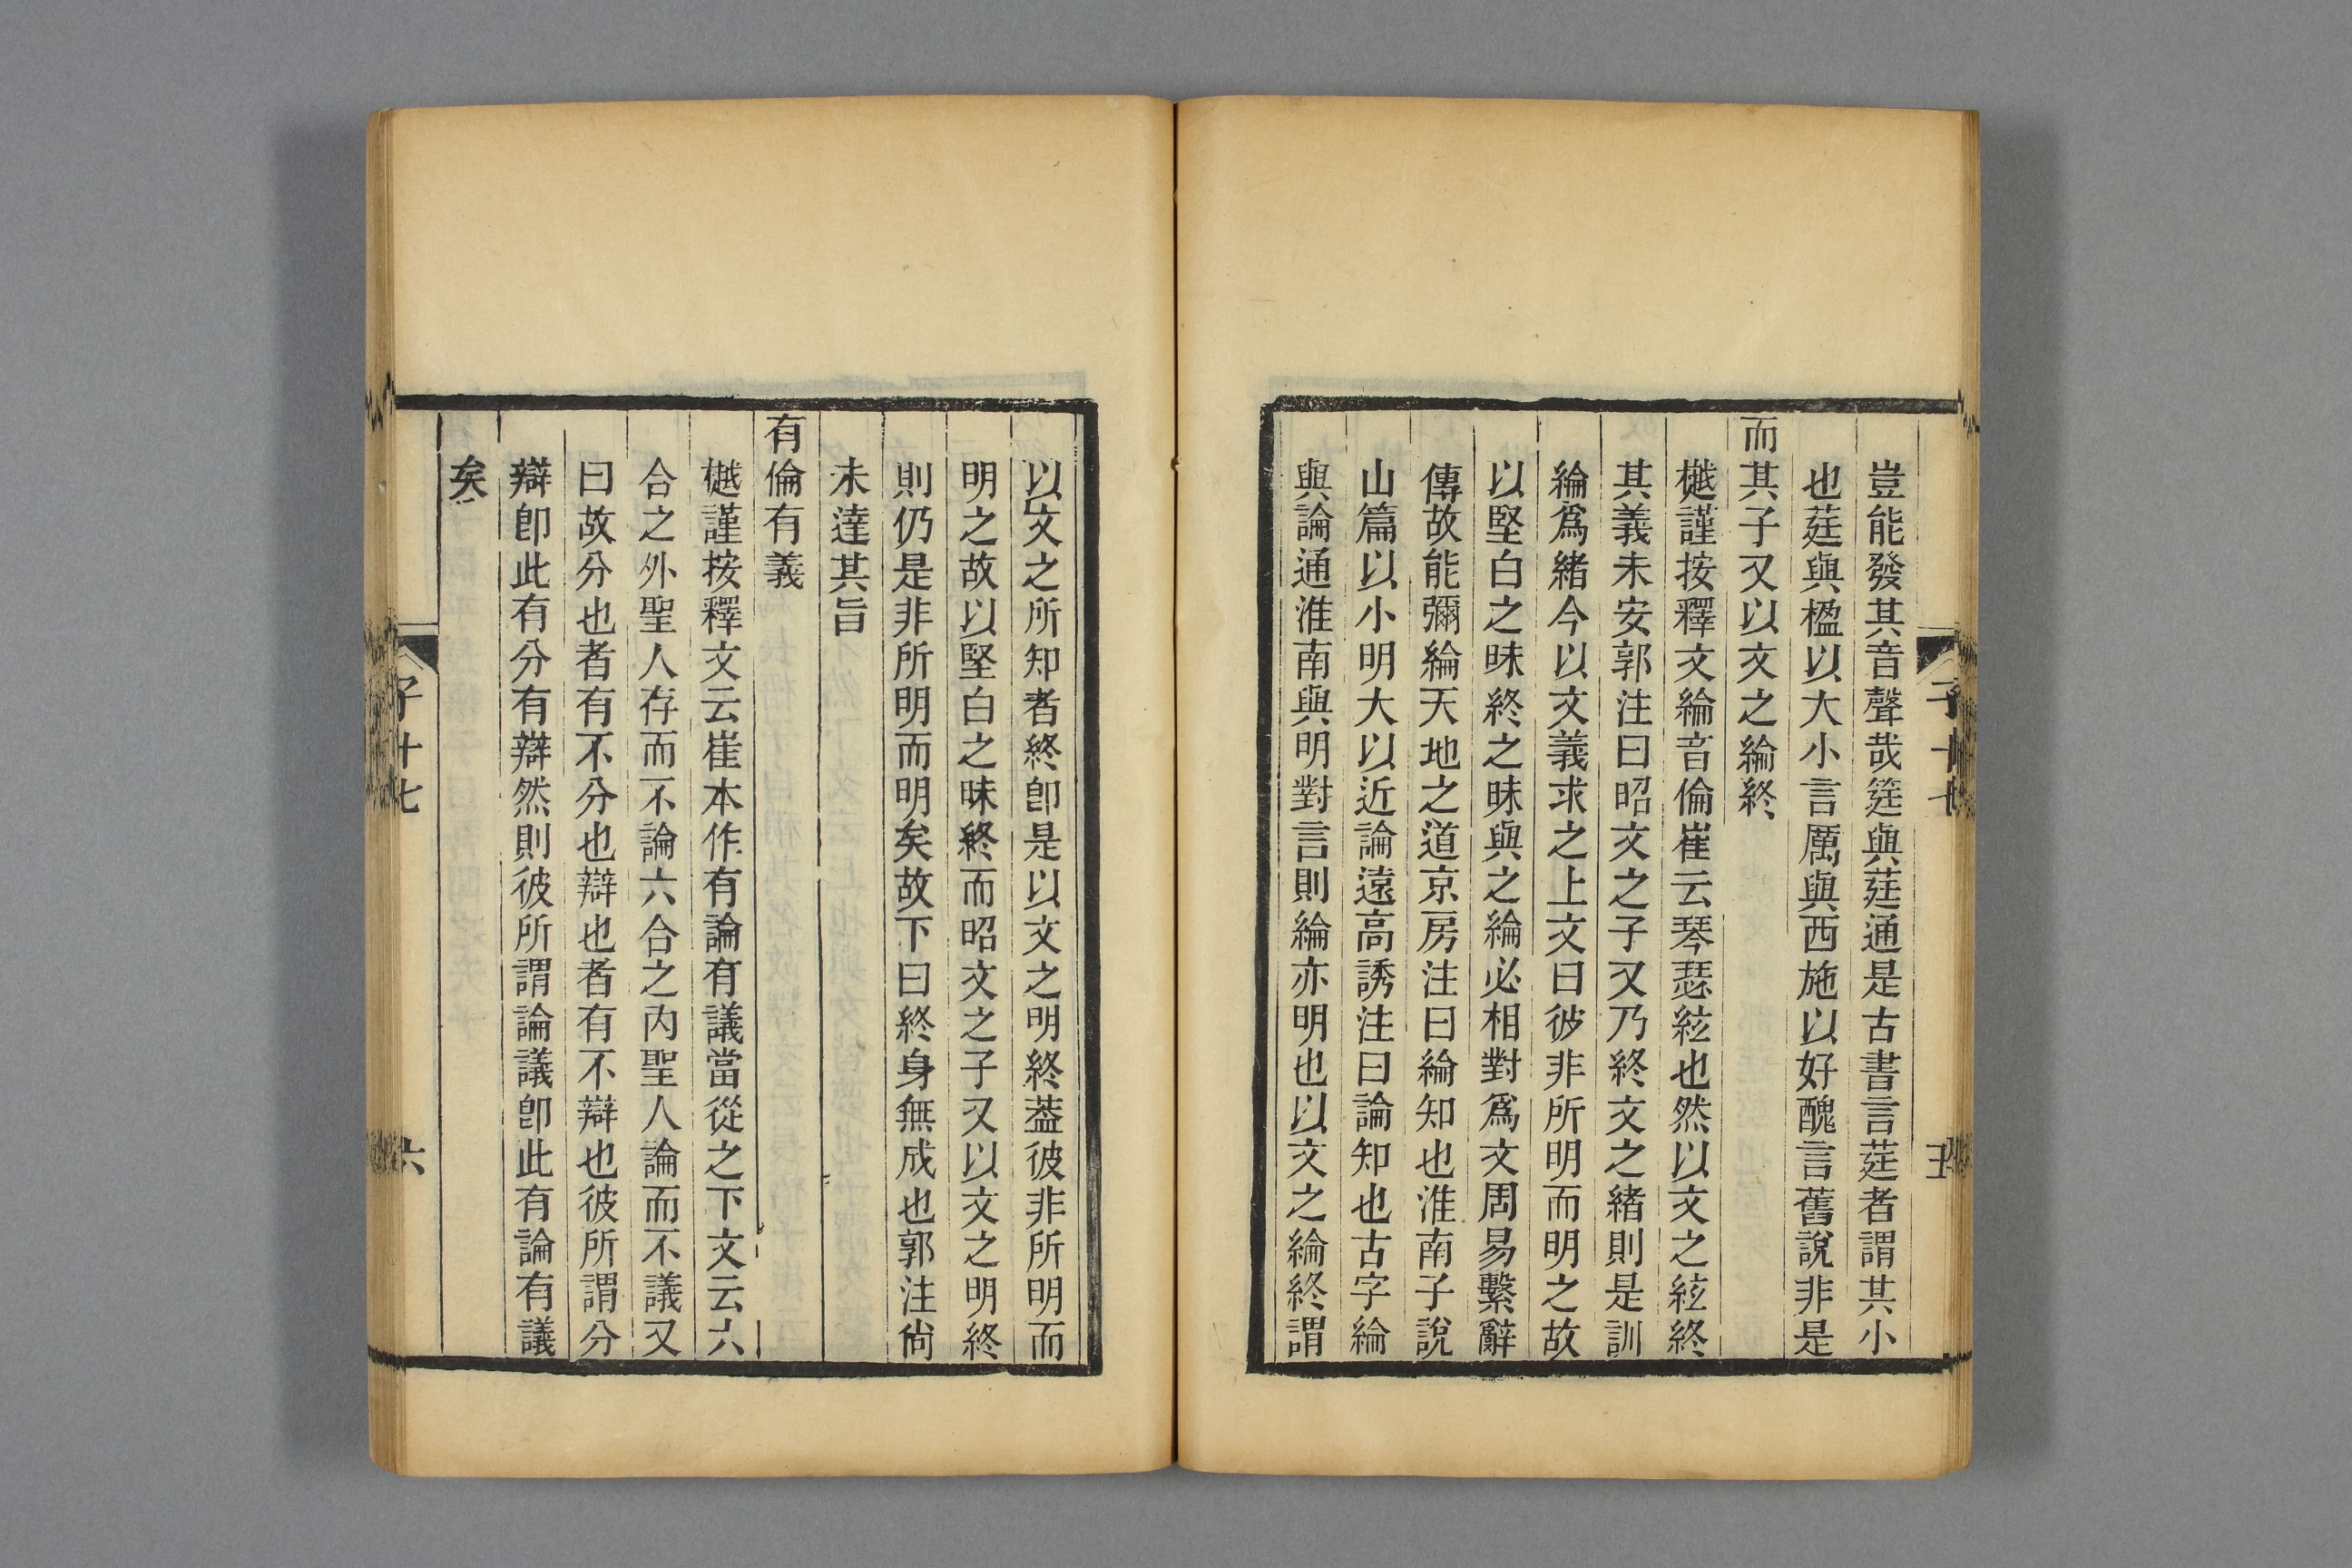 子十七
五
豈能發其音聲哉筳與莛通是古書言莛者謂其小
也莛與楹以大小言厲與西施以好醜言舊說非是
而其子又以文之綸終
樾謹按釋文綸音倫崔云琴瑟絃也然以文之絃終
其義未安郭注曰昭文之子又乃終文之緒則是訓
綸爲緒今以文義求之上文曰彼非所明而明之故
以堅白之昧終之昧與之綸必相對爲文周易繫辭
傳故能彌綸天地之道京房注曰綸知也淮南子說
山篇以小明大以近論遠高誘注曰論知也古字綸
與論通淮南與明對言則綸亦明也以文之綸終謂
以文之所知者終卽是以文之明終葢彼非所明而
明之故以堅白之昧終而昭文之子又以文之明終
則仍是非所明而明矣故下曰終身無成也郭注尙
未達其旨
有倫有義
樾謹按釋文云崔本作有論有議當從之下文云六
合之外聖人存而不論六合之內聖人論而不議又
曰故分也者有不分也辯也者有不辯也彼所謂分
辯卽此有分有辯然則彼所謂論議卽此有論有議
矣
子十七
六